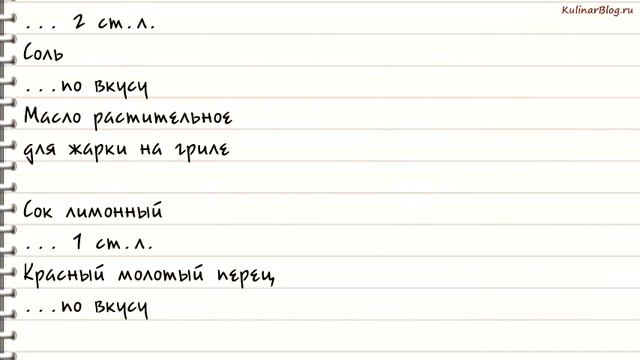 KulinarBlog.ru
... 2 ст.л.
Соль
...по вкусу
Масло растительное
для жарки на гриле
Сок лимонный
... 1 ст.л.
Красный молотый перец
...по вкусу